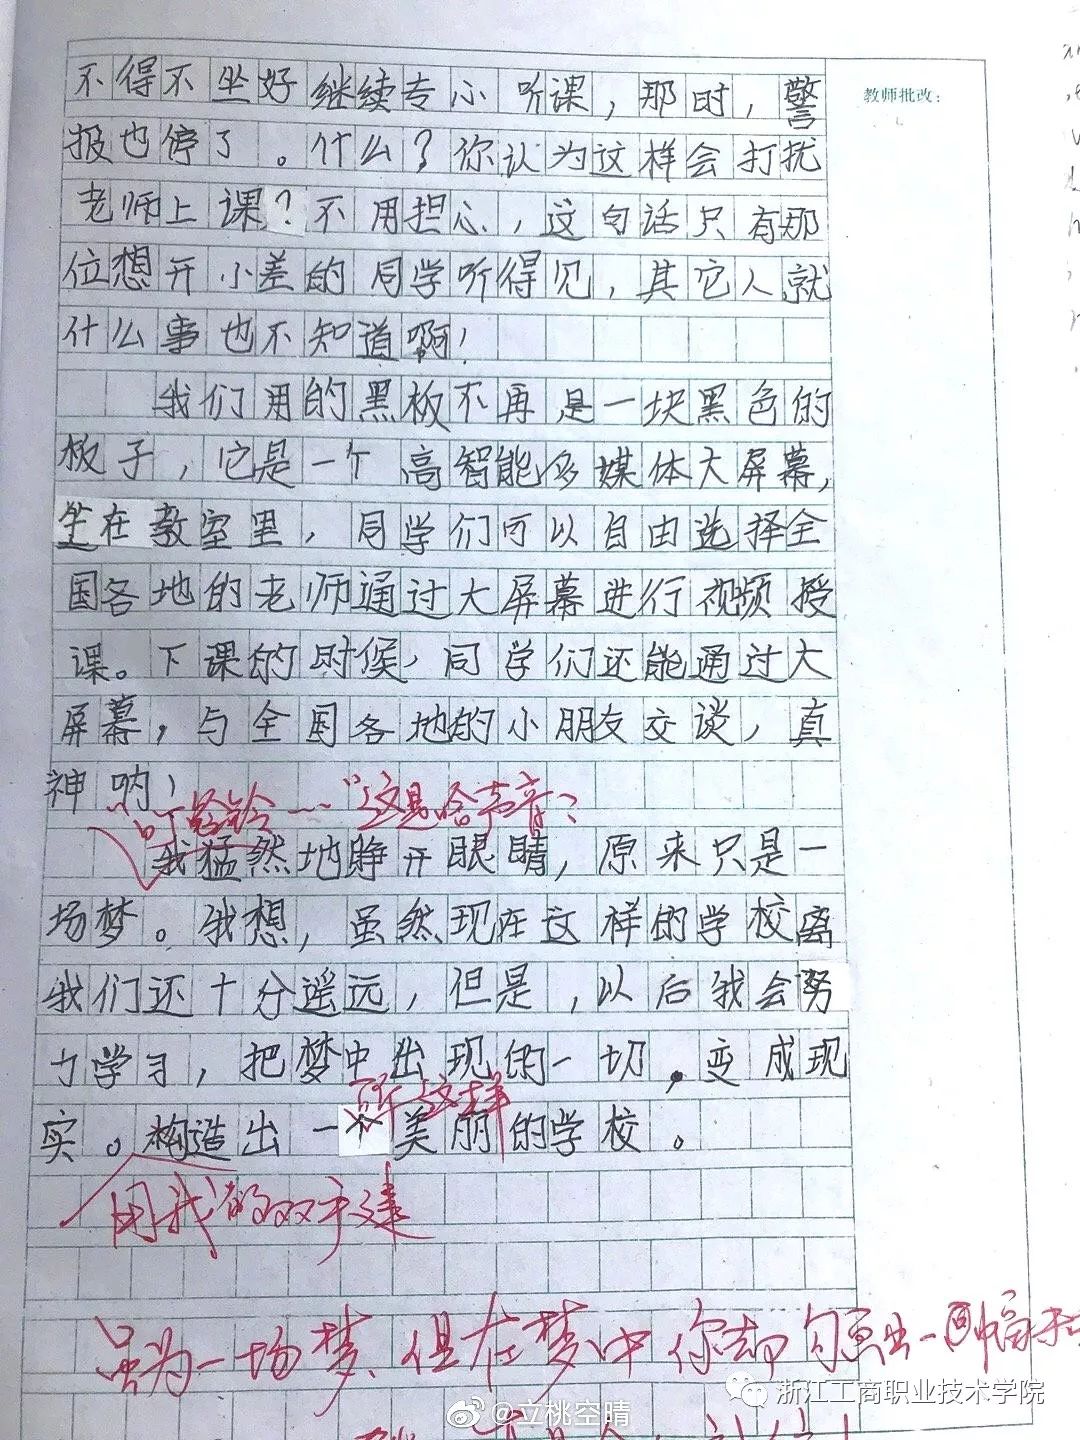 不得不坐好继续专心听课，那时，警
教师批改：
报也停了。什么？你认为这样会打扰
老师上课？不用担心，这句话只有那
位想开小差的同学听得见，其它人就
什么事也不知道啊！
我们用的黑板不再是一块黑色的
板子，它是一个高智能多媒体大屏幕，
坐在教室里，同学们可以自由选择全
国各地的老师通过大屏幕进行视频授
课。下课的时候，同学们还能通过大
屏幕，与全国各地的小朋友交谈，真
神呐！
"叮铃铃……"这是啥声音？
我猛然地睁开眼睛，原来只是一
场梦。我想，虽然现在这样的学校离
我们还十分遥远，但是，以后我会努
力学习，把梦中出现的一切，变成现
所这样
实。构造出一个美丽的学校。
用我的双手建
虽为一场梦，但在梦中你却勾画出一幅
浙江工商职业技术学院
@立桃空晴